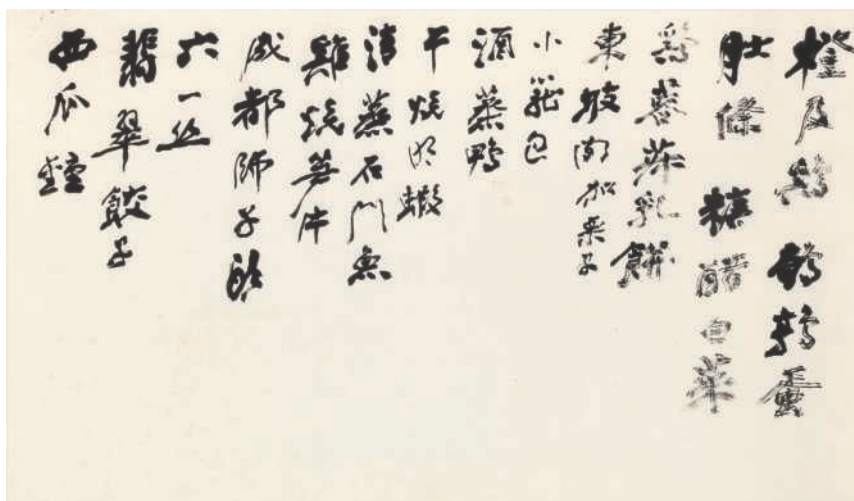 橙皮鷄 鵪鶉蛋
肚條 糖醋白菜
鷄蓉菽乳餅
東坡肉加栗子
小籠包
酒蒸鴨
干燒明蝦
清蒸石門魚
雞燒笋片
成都師子頭
六一丝
翡翠餃子
西瓜盅